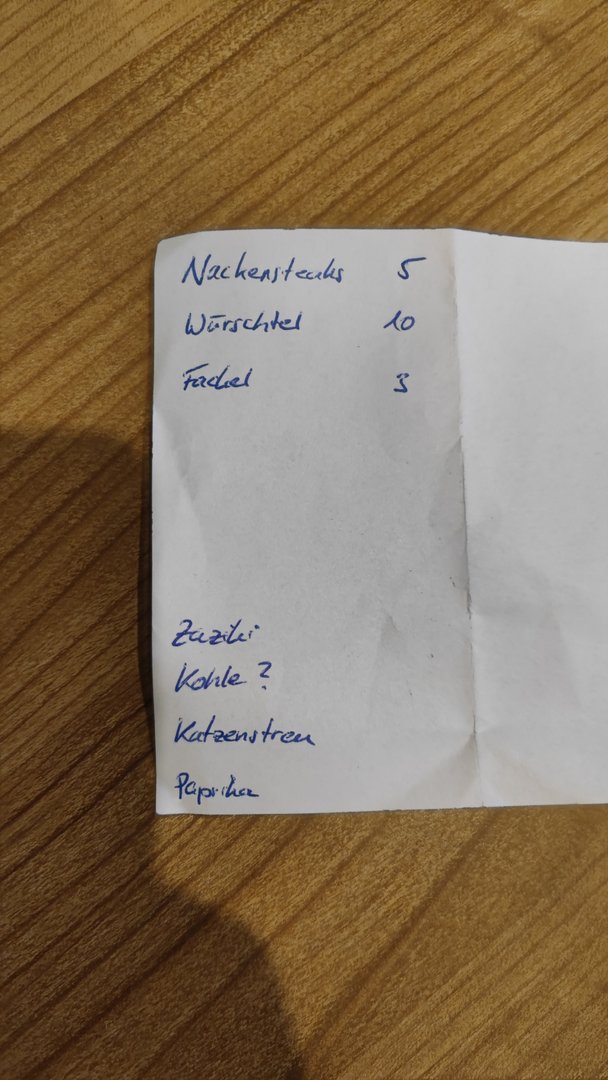 Nackensteaks 5
Würschtel 10
Fackel 3
Zaziki
Kohle?
Katzenstreu
Paprika